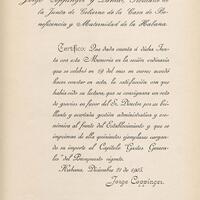 Jorge Coppinger y
la Junta de Gobierno de la Casa de Be-
neficencia y Maternidad de la Habana.
Certifico: Que dada cuenta á dicha Jun-
ta con esta Memoria en la sesión ordinaria
que se celebró en 29 del mes en curso acordó
hacer constar en acta, la satisfacción con que
había oido su lectura, que se consignara un voto
de gracias en favor del S. Director por su bri-
llante y acertada gestión administrativa y eco-
nómica al frente del Establecimiento y que se
impriman de ella quinientos ejemplares cargan-
do su importe al Capítulo "Gastos Genera-
les" del Presupuesto vigente.
Habana, Diciembre 31 de 1903.
Jorge Coppinger.